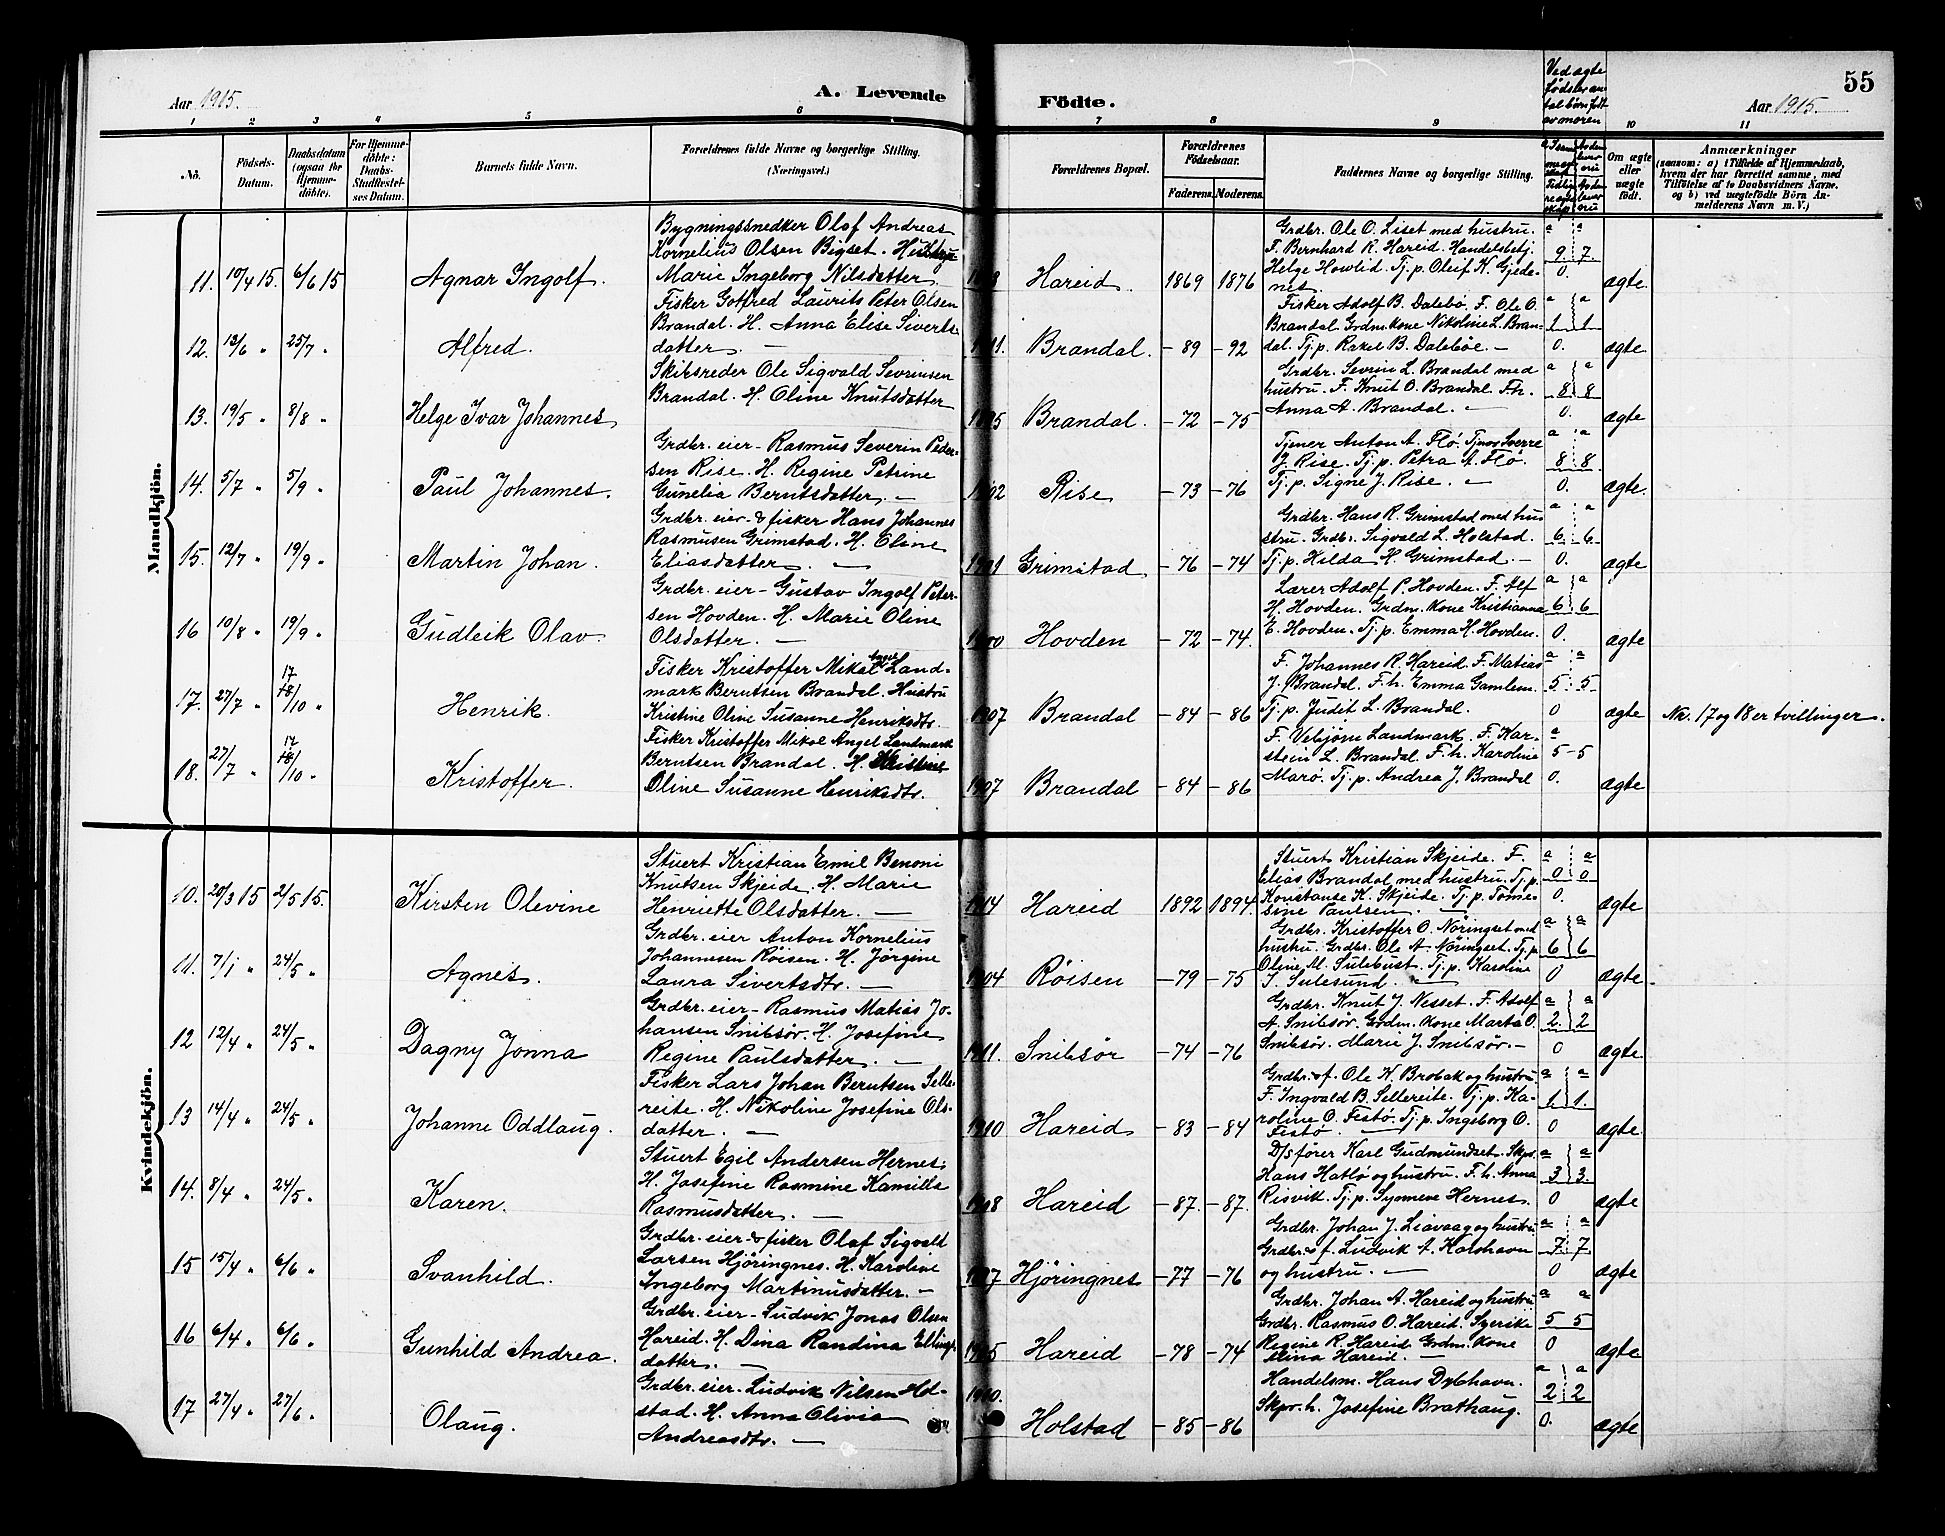 Aar 1915.
A. Levende
Födte.
Ved ægte fødsler antal børn født av moren
55
Aar 1915.
1 2 3 4 5 6 7 8 9 10 11
No.
Födsels-Datum.
Daabsdatum (ogsaa for Hjemmedöbte).
For Hjemmedöbte: Daabs-Stadfæstelses Datum.
Barnets fulde Navn.
Forældrenes fulde Navne og borgerlige Stilling. (Næringsvei.)
Forældrenes Bopæl.
Forældrenes Födselsaar.
Faderens. Moderens.
Faddernes Navne og borgerlige Stilling.
Om ægte eller uægte födt.
Anmærkninger
(saasom: a) i Tilfælde af Hjemmedaab, hvem der har forrettet samme, med Tilföielse af to Daabsvidners Navne, og b) ved uægtefödte Börn Anmelderens Navn m. V.)
Mandkjön.
11. 10/4 15. 6/6 15 Agnar Ingolf.
Bygningssnedker Olaf Andreas
Kornelius Olsen Bigset. Hustru
Marie Ingeborg Nilsdatter.
Hareid. 1869 1876
Grdbr. Ole O. Liset med hustru.
F. Bernhard R. Hareid. Handelsbetj.
Helge Hovlid. Tj. p. Oleif K. Gjede-
nes.
a a 9. 7. 0. ægte.
12. 13/6 " 25/7 " Alfred.
Fisker Gotfred Laurits Peter Olsen
Brandal. H. Anna Elise Siverts-
datter. —
1911. Brandal. - 89 - 92
Fisker Adolf B. Dalebø. F. Ole O.
Brandal. Grdm. kone Nikoline L. Bran-
dal. Tj. p. Rakel B. Dalebøe. —
a a 1 1 0. ægte
13. 19/5 " 8/8 " Helge Ivar Johannes
Skibsreder Ole Sigvald Sevrinsen
Brandal. H. Oline Knutsdatter
1895 Brandal. - 72 - 75
Grdbr. Sevrin L. Brandal med
hustru. F. Knut O. Brandal. F.h.
Anna A. Brandal. —
a a 8 8 0. ægte
14. 5/7 " 5/9 " Paul Johannes.
Grdbr. eier - Rasmus Severin Peder-
sen Rise. H. Regine Petrine
Gunelia Berntsdatter. —
1902 Rise - 73 - 76
Tjener Anton A. Flø. Tjener Sverre
J. Rise. Tj. p. Petra A. Flø.
Tj. p. Signe J. Rise. —
a a 8 8 0. ægte.
15. 12/7 " 19/9 " Martin Johan.
Grdbr. eier - & fisker Hans Johannes
Rasmusen Grimstad. H. Oline
Eliasdatter. —
1901 Grimstad. - 76 - 74
Grdbr. Hans R. Grimstad med hus
stru. Grdbr. Sigvald L. Holstad.
Tj. p. Hilda H. Grimstad. —
a a 6 6 0. ægte
16 10/8 " 19/9 " Gudleik Olav.
Grdbr. eier - Gustav Ingolf Peter-
sen Hovden. H. Marie Oline
Olsdatter. —
1900 Hovden - 72 - 74.
Lærer Adolf P. Hovden. F. Alf
H. Hovden. Grdm. kone Kristianna
E. Hovden. Tj. p. Emma H. Hovden.
a a 6 6 0. ægte
17. 27/7 " 17/10 " Henrik.
Fisker Kristoffer Mikal Angel Land-
mark Berntsen Brandal. Hustru
Kristine Oline Susanne Henriksdtr.
1907 Brandal - 84 - 86
F. Johannes R. Hareid. F. Matias
J. Brandal. F.h. Emma Gamlem.
Tj. p. Judit L. Brandal.
a a 5 5 0 ægte
Nr. 17 og 18 er tvillinger.
18. 27/7 " 17/10 " Kristoffer.
Fisker Kristoffer Mikal Angel Landmark
Berntsen Brandal. H. Kristine
Oline Susanne Henriksdtr.
1907 Brandal - 84 - 86
F. Vebjørn Landmark. F. Kar-
stein L. Brandal. F.h. Karoline
Marø. Tj. p. Andrea J. Brandal
a 5 - 5 0. ægte
Kvindekjön.
10. 20/3 15 2/5 15. Kirsten Olevine
Stuert Kristian Emil Benoni
Knutsen Skjeide. H. Marie
Henriette Olsdatter. —
1914 Hareid 1892 1894.
Stuert Kristian Skjeide. F.
Elias Brandal med hustru. Tj. p.
Konstanse K. Skjeide. Tj. p. Tomes-
sine Paulsen. —
a a 0 0 0. ægte
11. 7/1 " 24/5 " Agnes.
Grdbr. eier Anton Kornelius
Johannesen Røisen. H. Jørgine
Laura Sivertsdtr. —
1904 Røisen - 79 - 75
Grdbr. Kristoffer O. Nøringset med
hustru. Grdbr. Ole A. Nøringset. Tj. p.
Oline M. Sulebust. Tj. p. Karoline
S. Sulesund. —
a a 6 6 0 ægte.
12 12/4 " 24/5 " Dagny Jonna
Grdbr. eier - Rasmus Matias Jo-
hansen Snibsør. H. Josefine
Regine Paulsdatter. —
1911. Snibsør - 74 - 76
Grdbr. Knut J. Nesset. F. Adolf
A. Snibsør. Grdm. kone Marta O.
Snibsør. Marie J. Snibsør. —
a a 2. 2 0 ægte.
13 14/4 " 24/5 " Johanne Oddlaug.
Fisker Lars Johan Berntsen Selle-
reite. H. Nikoline Josefine Ols-
datter. —
1910 Hareid - 83 - 84
Grdbr. s. f. Ole K. Brobak og hustru
F. Ingvald B. Sellereite. Tj. p. Ka-
roline O. Festø. Tj. p. Ingeborg O.
Festø. —
a a 1. 1. 0 ægte.
14. 8/4 " 24/5 " Karen.
Stuert Egil Andersen Hernes.
H. Josefine Rasmine Kamilla
Rasmusdatter. —
1908 Hareid - 87. - 87.
D/s fører Karl Gudmundset. Skpr.
Hans Hatlø og hustru. F. h. Anna
Risvik. Tj. p. Synneve Hernes.
a a 3 3. 0 ægte
15 15/4 " 6/6 " Svanhild.
Grdbr. eier - & fisker Olaf Sigvald
Larsen Hjøringnes. H. Karoline
Ingeborg Martinusdatter. —
1897 Hjøringnes - 77 - 76
Grdbr. Johan J. Liavaag og hustru.
Grdbr. s. f. Ludvik A. Kalshavn
og hustru. —
a a 7 7 0 ægte
16 6/4 " 6/6 " Gunhild Andrea.
Grdbr. eier - Ludvik Jonas Olsen
Hareid. H. Dina Randina Ellings
datter. —
1905 Hareid - 78 - 74
Grdbr. Johan A. Hareid og hustru
Grdbr. Rasmus O. Hareid. Syerske
Regine R. Hareid. Grdm. kone
Hareid. —
a a 5 5 0 ægte
17 27/4 " 27/6 " Olaug.
Grdbr. eier - Ludvik Nilsen Hol-
stad. H. Anna Olivia
Andreasdtr. —
1910. Holstad - 85 - 86
Handelsm. Hans Dybhavn.
Skpr. h. Josefine Brathaug.
a a 2 2 0. ægte